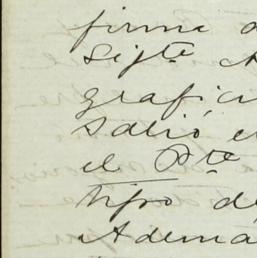 firma a
Sigte A
grafic
Salió e
el Pte
tipo de
Ademá